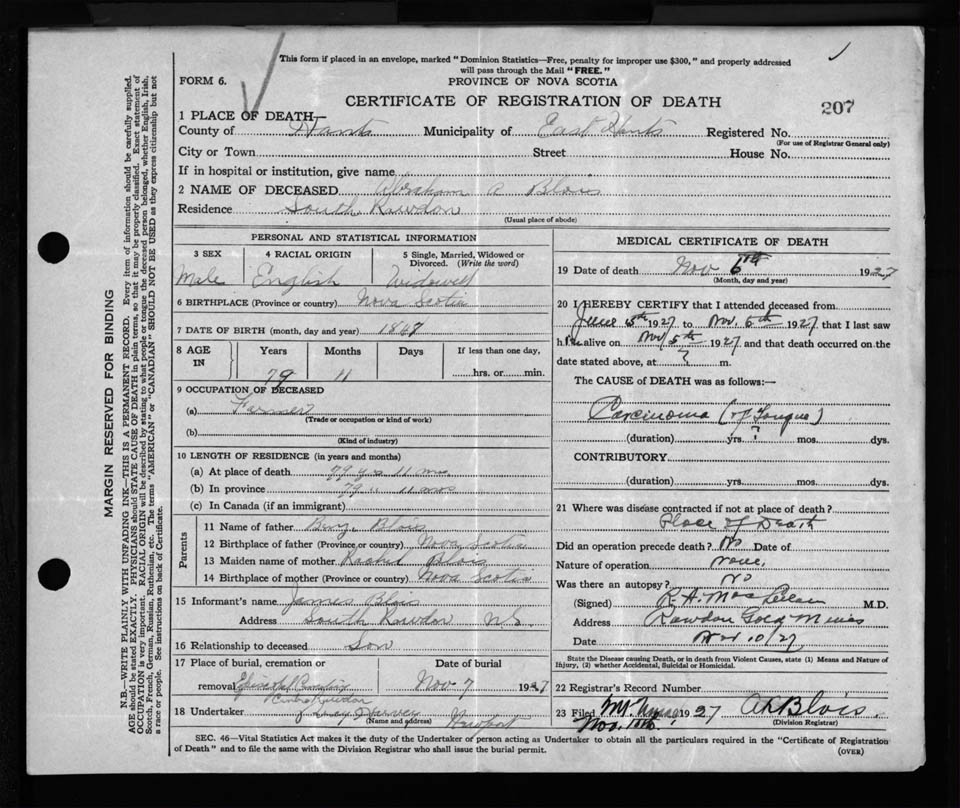 This form if placed in an envelope, marked "Dominion Statistics—Free, penalty for improper use $300," and properly addressed
will pass through the Mail "FREE."
FORM 6.
PROVINCE OF NOVA SCOTIA
CERTIFICATE OF REGISTRATION OF DEATH
207
1 PLACE OF DEATH—
County of Hants Municipality of East Hants Registered No.
(For use of Registrar General only)
City or Town Street House No.
If in hospital or institution, give name
2 NAME OF DECEASED Abraham A Blois
Residence South Rawdon
(Usual place of abode)
PERSONAL AND STATISTICAL INFORMATION
3 SEX 4 RACIAL ORIGIN 5 Single, Married, Widowed or Divorced. (Write the word)
Male English Widowed
6 BIRTHPLACE (Province or country) Nova Scotia
7 DATE OF BIRTH (month, day and year)
8 AGE IN Years Months Days If less than one day,
79 11 hrs. or min.
9 OCCUPATION OF DECEASED
(a) Farmer
(Trade or occupation or kind of work)
(b)
(Kind of industry)
10 LENGTH OF RESIDENCE (in years and months)
(a) At place of death 79 yrs 11 mos.
(b) In province 79 " 11 mos
(c) In Canada (if an immigrant)
Parents
11 Name of father Benj. Blois
12 Birthplace of father (Province or country) Nova Scotia
13 Maiden name of mother Rachel Blois
14 Birthplace of mother (Province or country) Nova Scotia
15 Informant's name James Blois
Address South Rawdon N.S.
16 Relationship to deceased Son
17 Place of burial, cremation or Date of burial
removal Episcopal Cemetery Nov 7 1927
Centre Rawdon
18 Undertaker Harvey Newport
(Name and address)
MEDICAL CERTIFICATE OF DEATH
19 Date of death Nov 6th 1927
(Month, day and year)
20 I HEREBY CERTIFY that I attended deceased from
June 5th 1927 to Nov. 5th 1927 that I last saw
him alive on Nov 5th 1927 and that death occurred on the
date stated above, at ? m.
The CAUSE of DEATH was as follows:—
Carcinoma (of Tongue)
(duration) yrs. ? mos. dys.
CONTRIBUTORY
(duration) yrs. mos. dys.
21 Where was disease contracted if not at place of death?
Place of Death
Did an operation precede death? No Date of
Nature of operation None.
Was there an autopsy? No
(Signed) R. A. MacLellan M.D.
Address Rawdon Gold Mines
Date Nov 10/27
State the Disease causing Death, or in death from Violent Causes, state (1) Means and Nature of
Injury, (2) whether Accidental, Suicidal or Homicidal.
22 Registrar's Record Number
23 Filed Nov. 11th. 1927 A R Blois.
(Division Registrar)
SEC. 46—Vital Statistics Act makes it the duty of the Undertaker or person acting as Undertaker to obtain all the particulars required in the "Certificate of Registration
of Death" and to file the same with the Division Registrar who shall issue the burial permit.
(OVER)
MARGIN RESERVED FOR BINDING
N.B.—WRITE PLAINLY WITH UNFADING INK—THIS IS A PERMANENT RECORD. Every item of information should be carefully supplied.
AGE should be stated EXACTLY. PHYSICIANS should STATE CAUSE OF DEATH in plain terms, so that it may be properly classified. Exact statement of
OCCUPATION is very important. RACIAL ORIGIN will be described by stating to what people or tongue the deceased person belonged, whether English, Irish,
Scotch, French, German, Russian, Ruthenian, etc. The terms "AMERICAN" or "CANADIAN" SHOULD NOT BE USED as they express citizenship but not
a race or people. See instructions on back of Certificate.